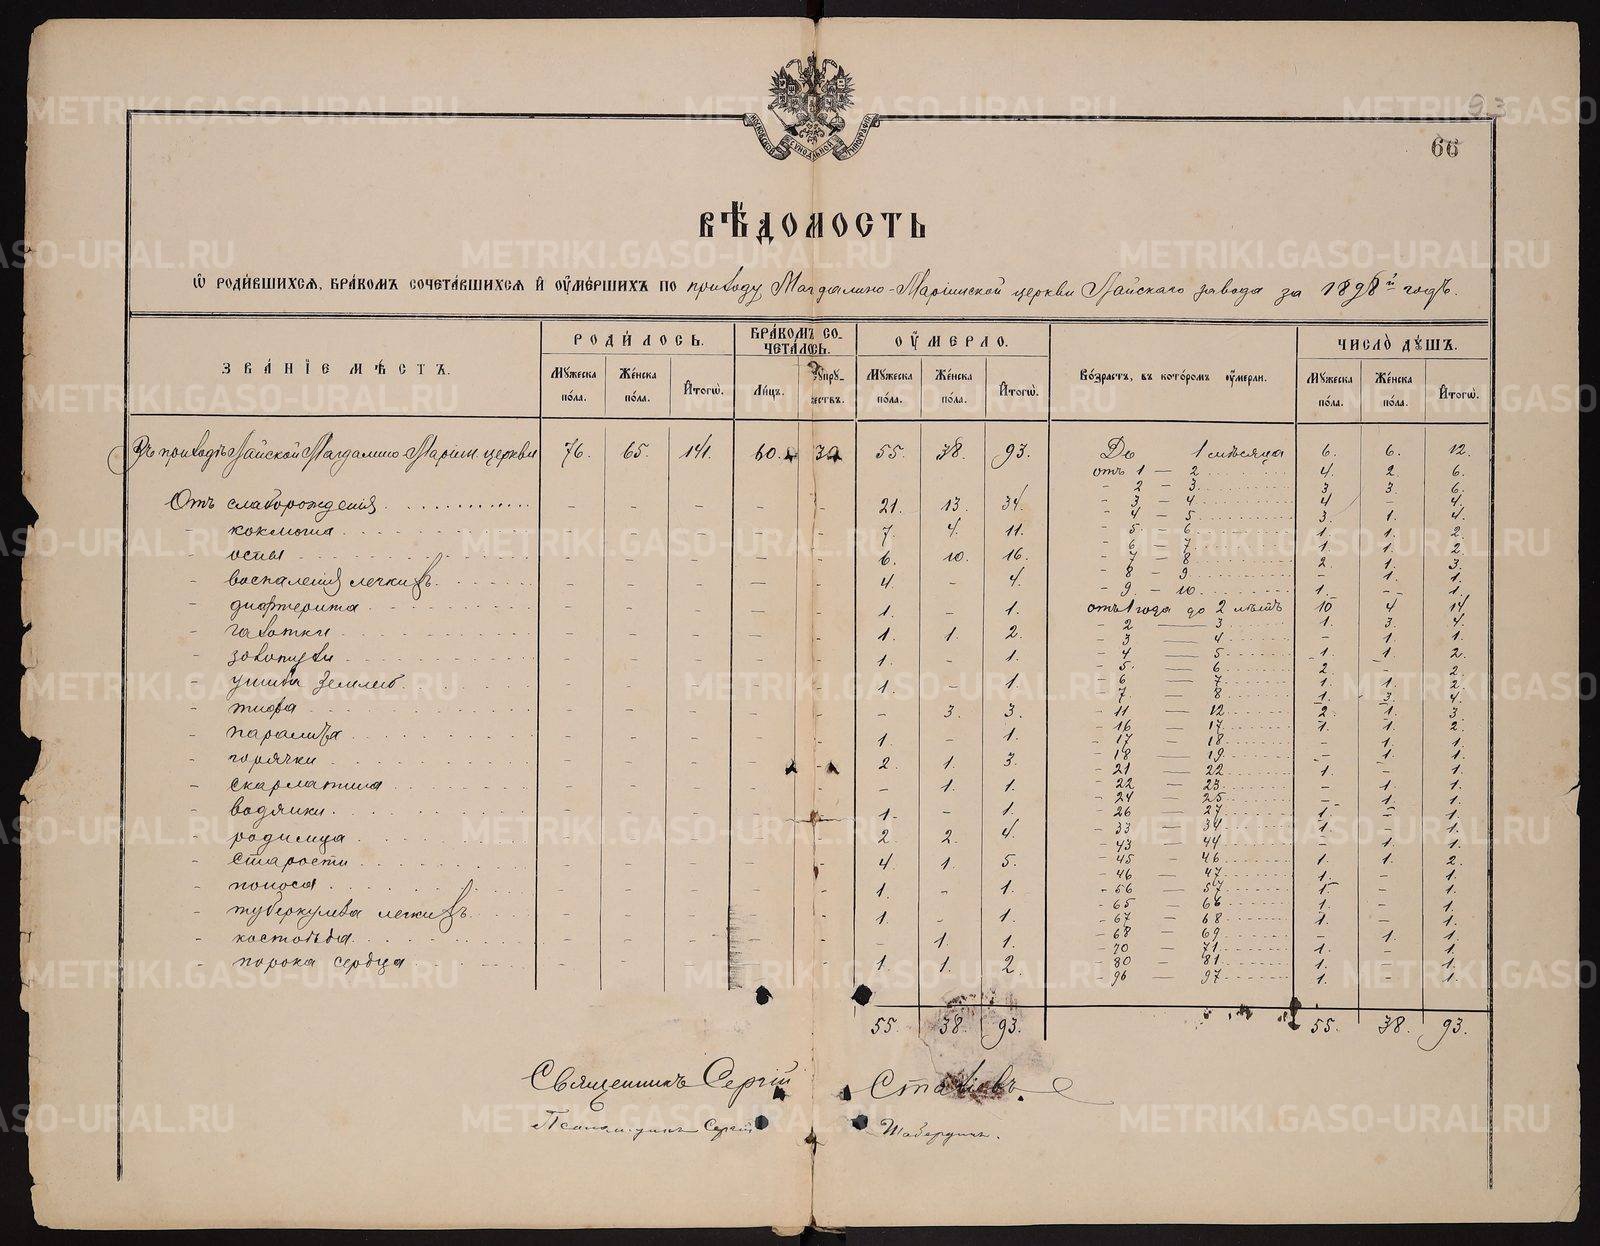 93
66
МОСКОВСКОЙ СѴНОДАЛЬНОЙ ТИПОГРАФІИ
ВѢДОМОСТЬ
Ѡ РОДИВШИХСЯ, БРАКОМЪ СОЧЕТАВШИХСЯ И ОУМЕРШИХЪ ПО приходу Магдалино-Маріинской церкви Лайскаго завода за 1898й годъ.
ЗВАНІЕ МѢСТЪ. РОДИЛОСЬ. БРАКОМЪ СОЧЕТАЛОСЬ. ОУМЕРЛО. Возрастъ, въ которомъ оумерли. ЧИСЛО ДУШЪ.
Мужеска пола. Женска пола. Итогѡ. Лицъ. Супружествъ. Мужеска пола. Женска пола. Итогѡ. Мужеска пола. Женска пола. Итогѡ.
Въ приходѣ Лайской Магдалино-Маріин. церкви 76. 65. 141. 60. 30. 55. 38. 93.
Отъ слаборожденія - - - - - 21. 13. 34.
- коклюша - - - - - 7. 4. 11.
- оспы - - - - - 6. 10. 16.
- воспаленія легкихъ - - - - - 4. - 4.
- дифтерита - - - - - 1. - 1.
- чахотки - - - - - 1. 1. 2.
- - - - - - 1. - 1.
- - - - - - 1. - 1.
- тифа - - - - - - 3. 3.
- паралича - - - - - 1. - 1.
- горячки - - - - - 2. 1. 3.
- скарлатина - - - - - - 1. 1.
- водянки - - - - - 1. - 1.
- родимца - - - - - 2. 2. 4.
- старости - - - - - 4. 1. 5.
- поноса - - - - - 1. - 1.
- туберкулеза легкихъ - - - - - 1. - 1.
- костоѣда - - - - - - 1. 1.
- порока сердца - - - - - 1. 1. 2.
55. 38. 93.
До 1 мѣсяца 6. 6. 12.
отъ 1 — 2 4. 2. 6.
- 2 — 3 3. 3. 6.
- 3 — 4 4 - 4.
- 4 — 5 3. 1. 4.
- 5 — 6 1. 1. 2.
- 6 — 7 1. 1. 2.
- 7 — 8 2. 1. 3.
- 8 — 9 - 1. 1.
- 9 — 10 1. - 1.
отъ 1 года до 2 лѣтъ 10 4 14
- 2 — 3 1. 3. 4.
- 3 — 4 - 1. 1.
- 4 — 5 1. 1. 2.
- 5 — 6 2. - 2.
- 6 — 7 1. 1. 2.
- 7 — 8 1. 3. 4.
- 11 — 12 2. 1. 3.
- 16 — 17 1. 1. 2.
- 17 — 18 - 1. 1.
- 18 — 19 - 1. 1.
- 21 — 22 1. - 1.
- 22 — 23 - 1. 1.
- 24 — 25 - 1. 1.
- 26 — 27 1. - 1.
- 33 — 34 1. - 1.
- 43 — 44 - 1. 1.
- 45 — 46 1. 1. 2.
- 46 — 47 1. - 1.
- 56 — 57 1. - 1.
- 65 — 66 1. - 1.
- 67 — 68 1. - 1.
- 68 — 69 - 1. 1.
- 70 — 71 1. - 1.
- 80 — 81 1. - 1.
- 96 — 97 1. - 1.
55. 38. 93.
Священникъ Сергій Стаховъ.
Псаломщикъ Сергій Шабердинъ.
METRIKI.GASO-URAL.RU